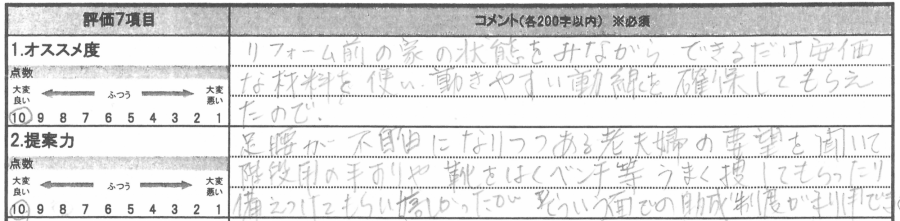 評価7項目
コメント(各200字以内) ※必須
1.オススメ度
点数
大変良い ふつう 大変悪い
10 9 8 7 6 5 4 3 2 1
リフォーム前の家の状態をみながら できるだけ安価
な材料を使い、動きやすい動線を確保してもらえ
たので!
2.提案力
点数
大変良い ふつう 大変悪い
10 9 8 7 6 5 4 3 2 1
足腰が不自由になりつつある老夫婦の要望を聞いて
階段用の手すりや靴をはくベンチ等うまく捜してもらったり
備えつけてもらい嬉しかったが そういう面での助成制度が利用でき